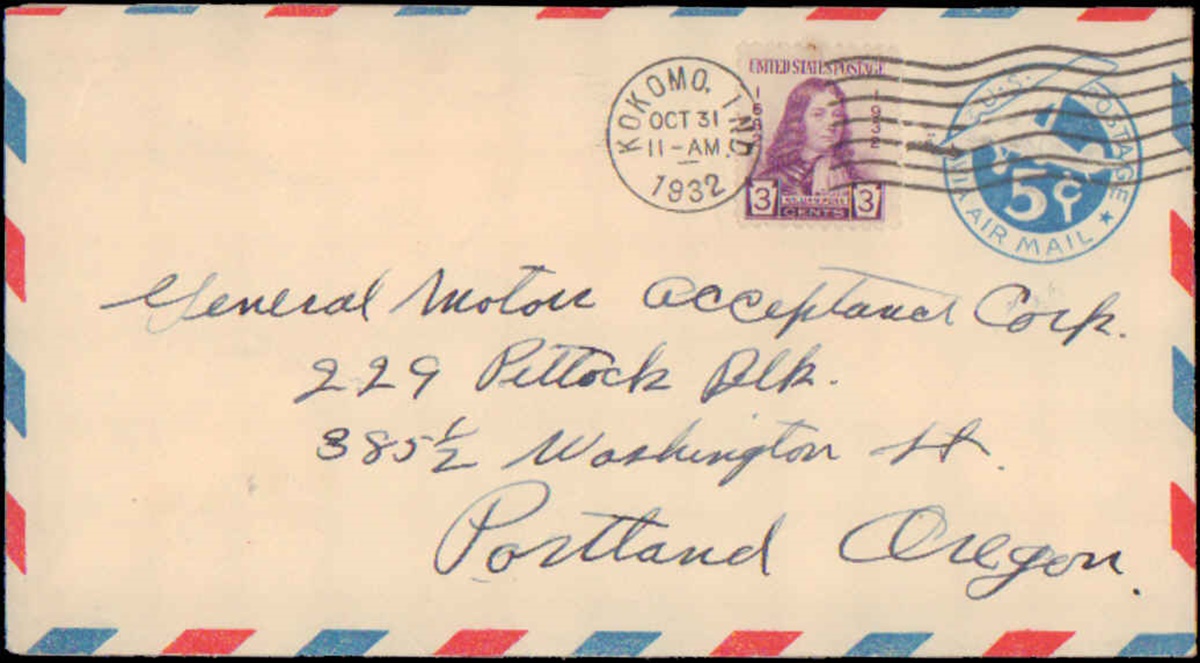 KOKOMO, IND.
OCT 31
11-AM
1932
UNITED STATES POSTAGE
1682
1932
3 3
CENTS
U.S. POSTAGE
5¢
VIA AIR MAIL
General Motors Acceptance Corp.
229 Pittock Blk.
385 1/2 Washington St.
Portland Oregon.